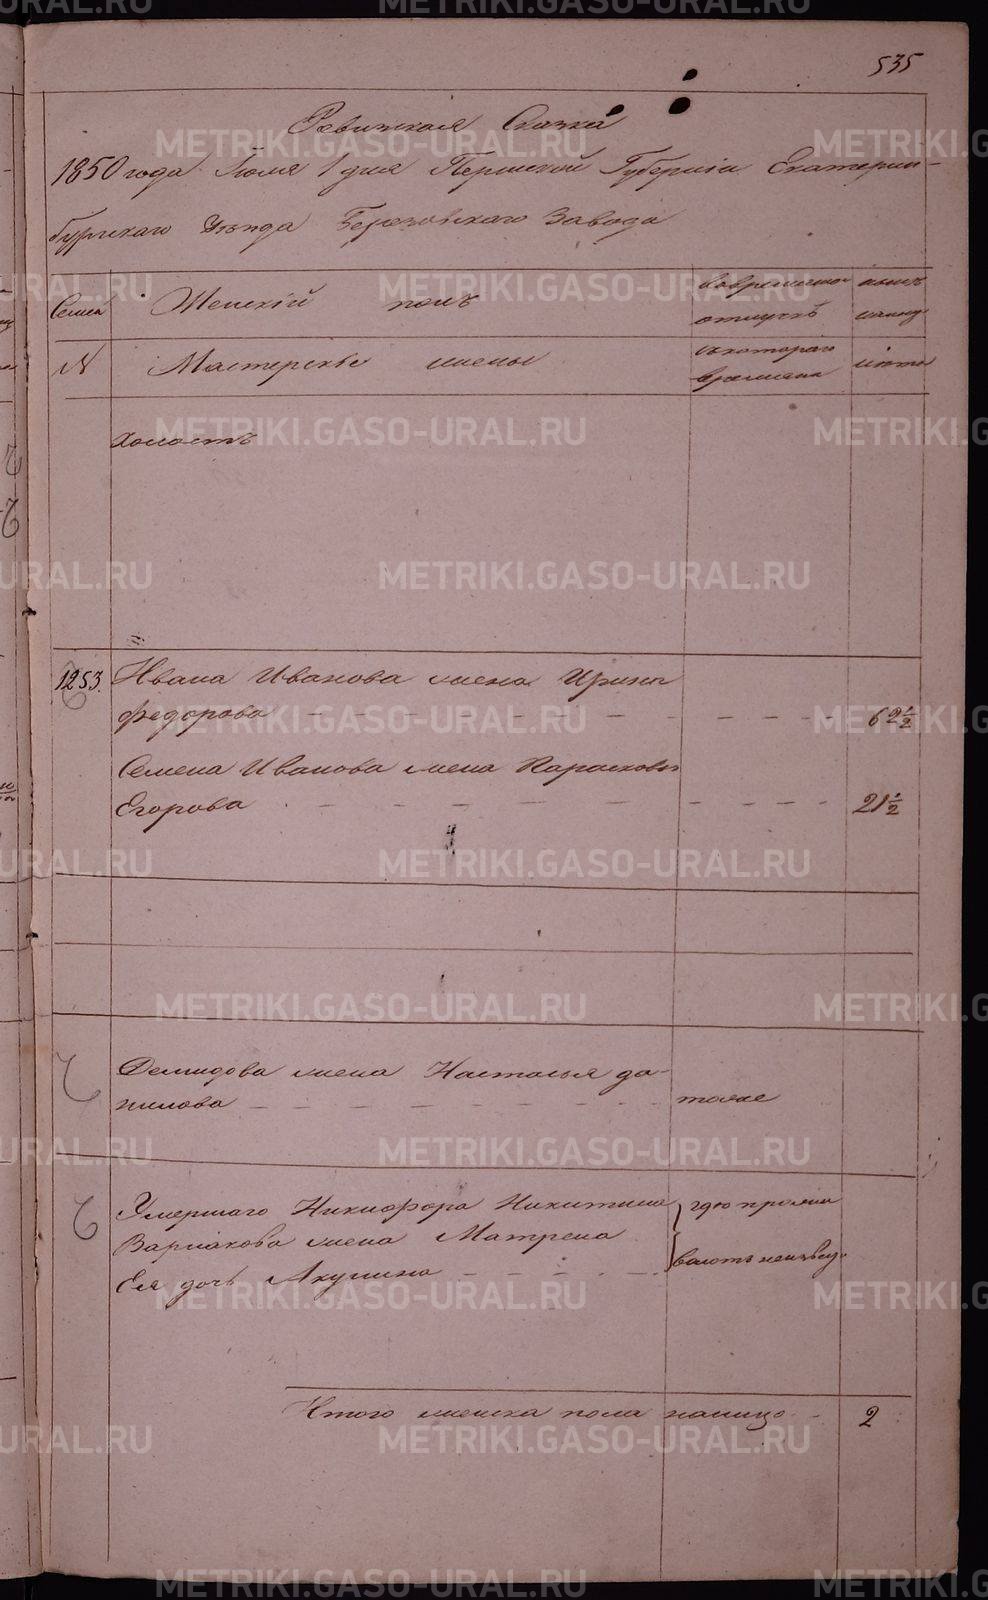 535
Ревизская Сказка
1850 года Июня 1 дня Пермской Губернiи Екатерин-
бургскаго Уѣзда Березовскаго Завода
Семей Женскiй полъ во временной отлучкѣ
№ Мастерскiе жены съ котораго времяни лѣта
холостъ
1253. Ивана Иванова жена Ирина
Федорова 62 1/2
Семена Иванова жена Парасковья
Егорова 21 1/2
Демидова жена Настасья Да-
нилова тоже
Умершаго Никифора Никитина
Варлакова жена Матрена
Ея дочь Акулина
гдѣ прожи
ваютъ неизвѣд.
Итого женска пола налицо 2
METRIKI.GASO-URAL.RU